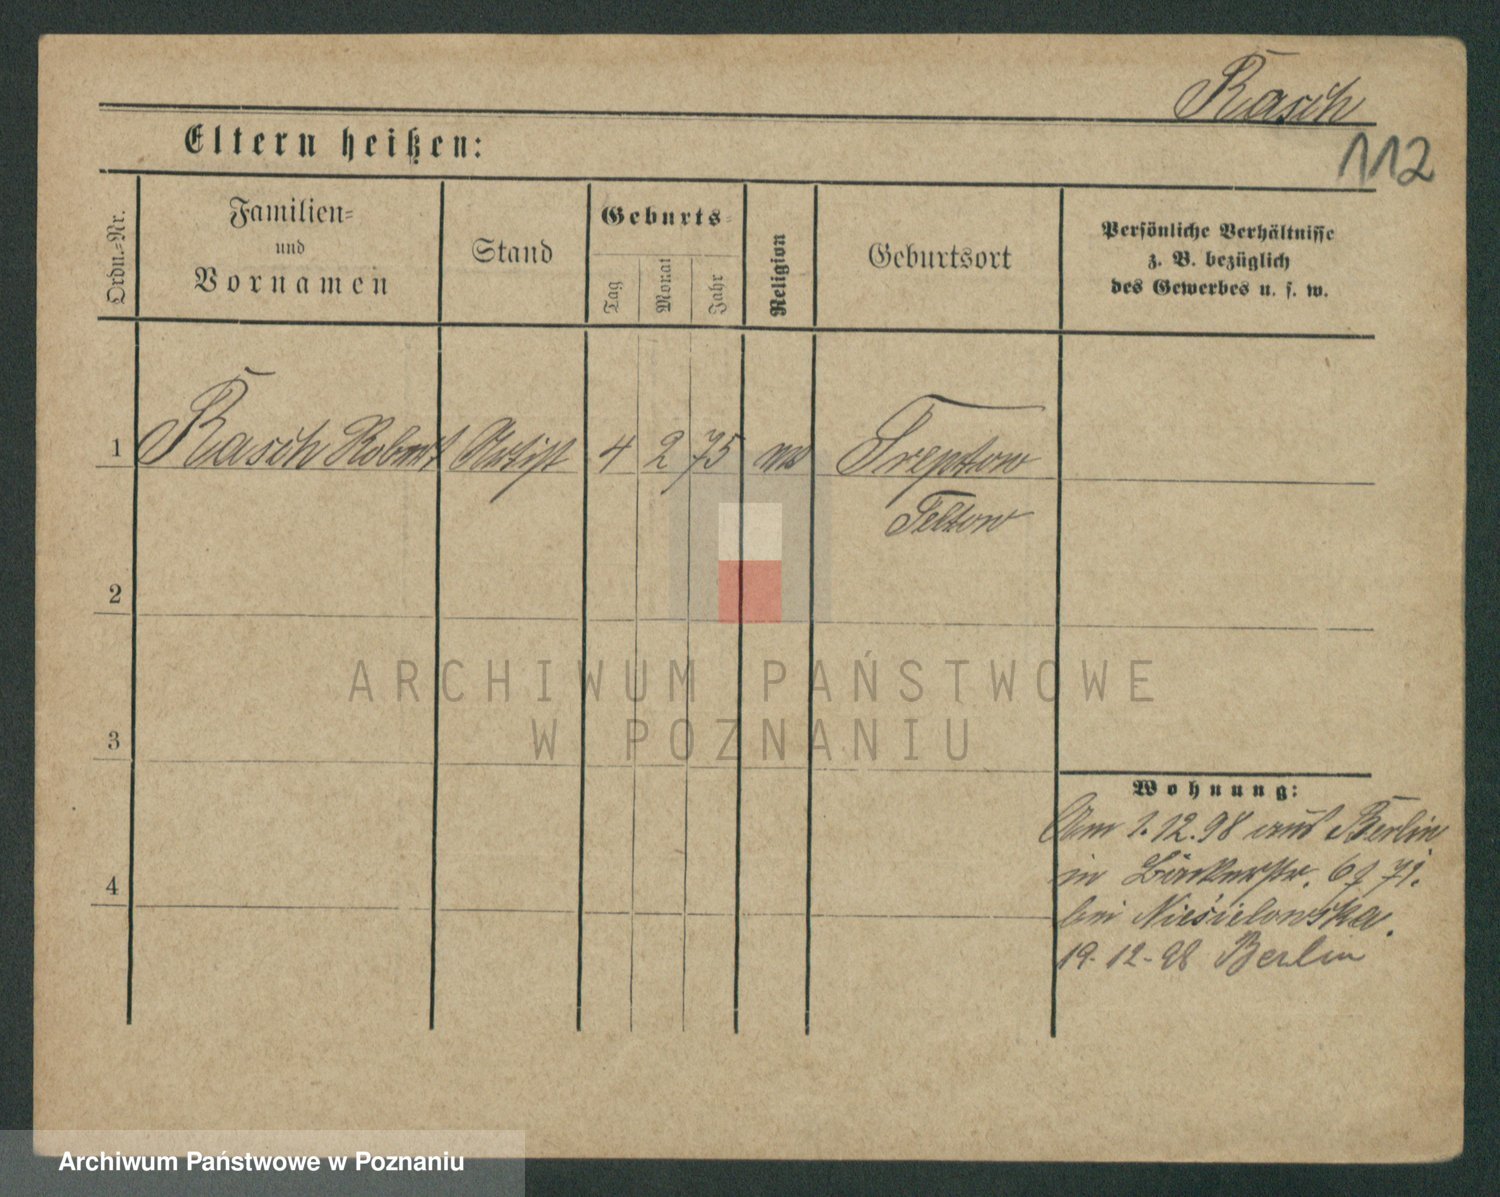 Rasch
112
Eltern heißen:
Ordn.-Nr.
Familien-
und
Vornamen
Stand
Geburts-
Tag
Monat
Jahr
Religion
Geburtsort
Persönliche Verhältnisse
z. B. bezüglich
des Gewerbes u. s. w.
1 Rasch Robert Artist 4 2 75 Treptow
Teltow
2
3
4
Wohnung:
Am 1.12.98 aus Berlin
in Bäckerstr. 71.
bei Niesielowska.
19-12-98 Berlin
ARCHIWUM PAŃSTWOWE
W POZNANIU
Archiwum Państwowe w Poznaniu